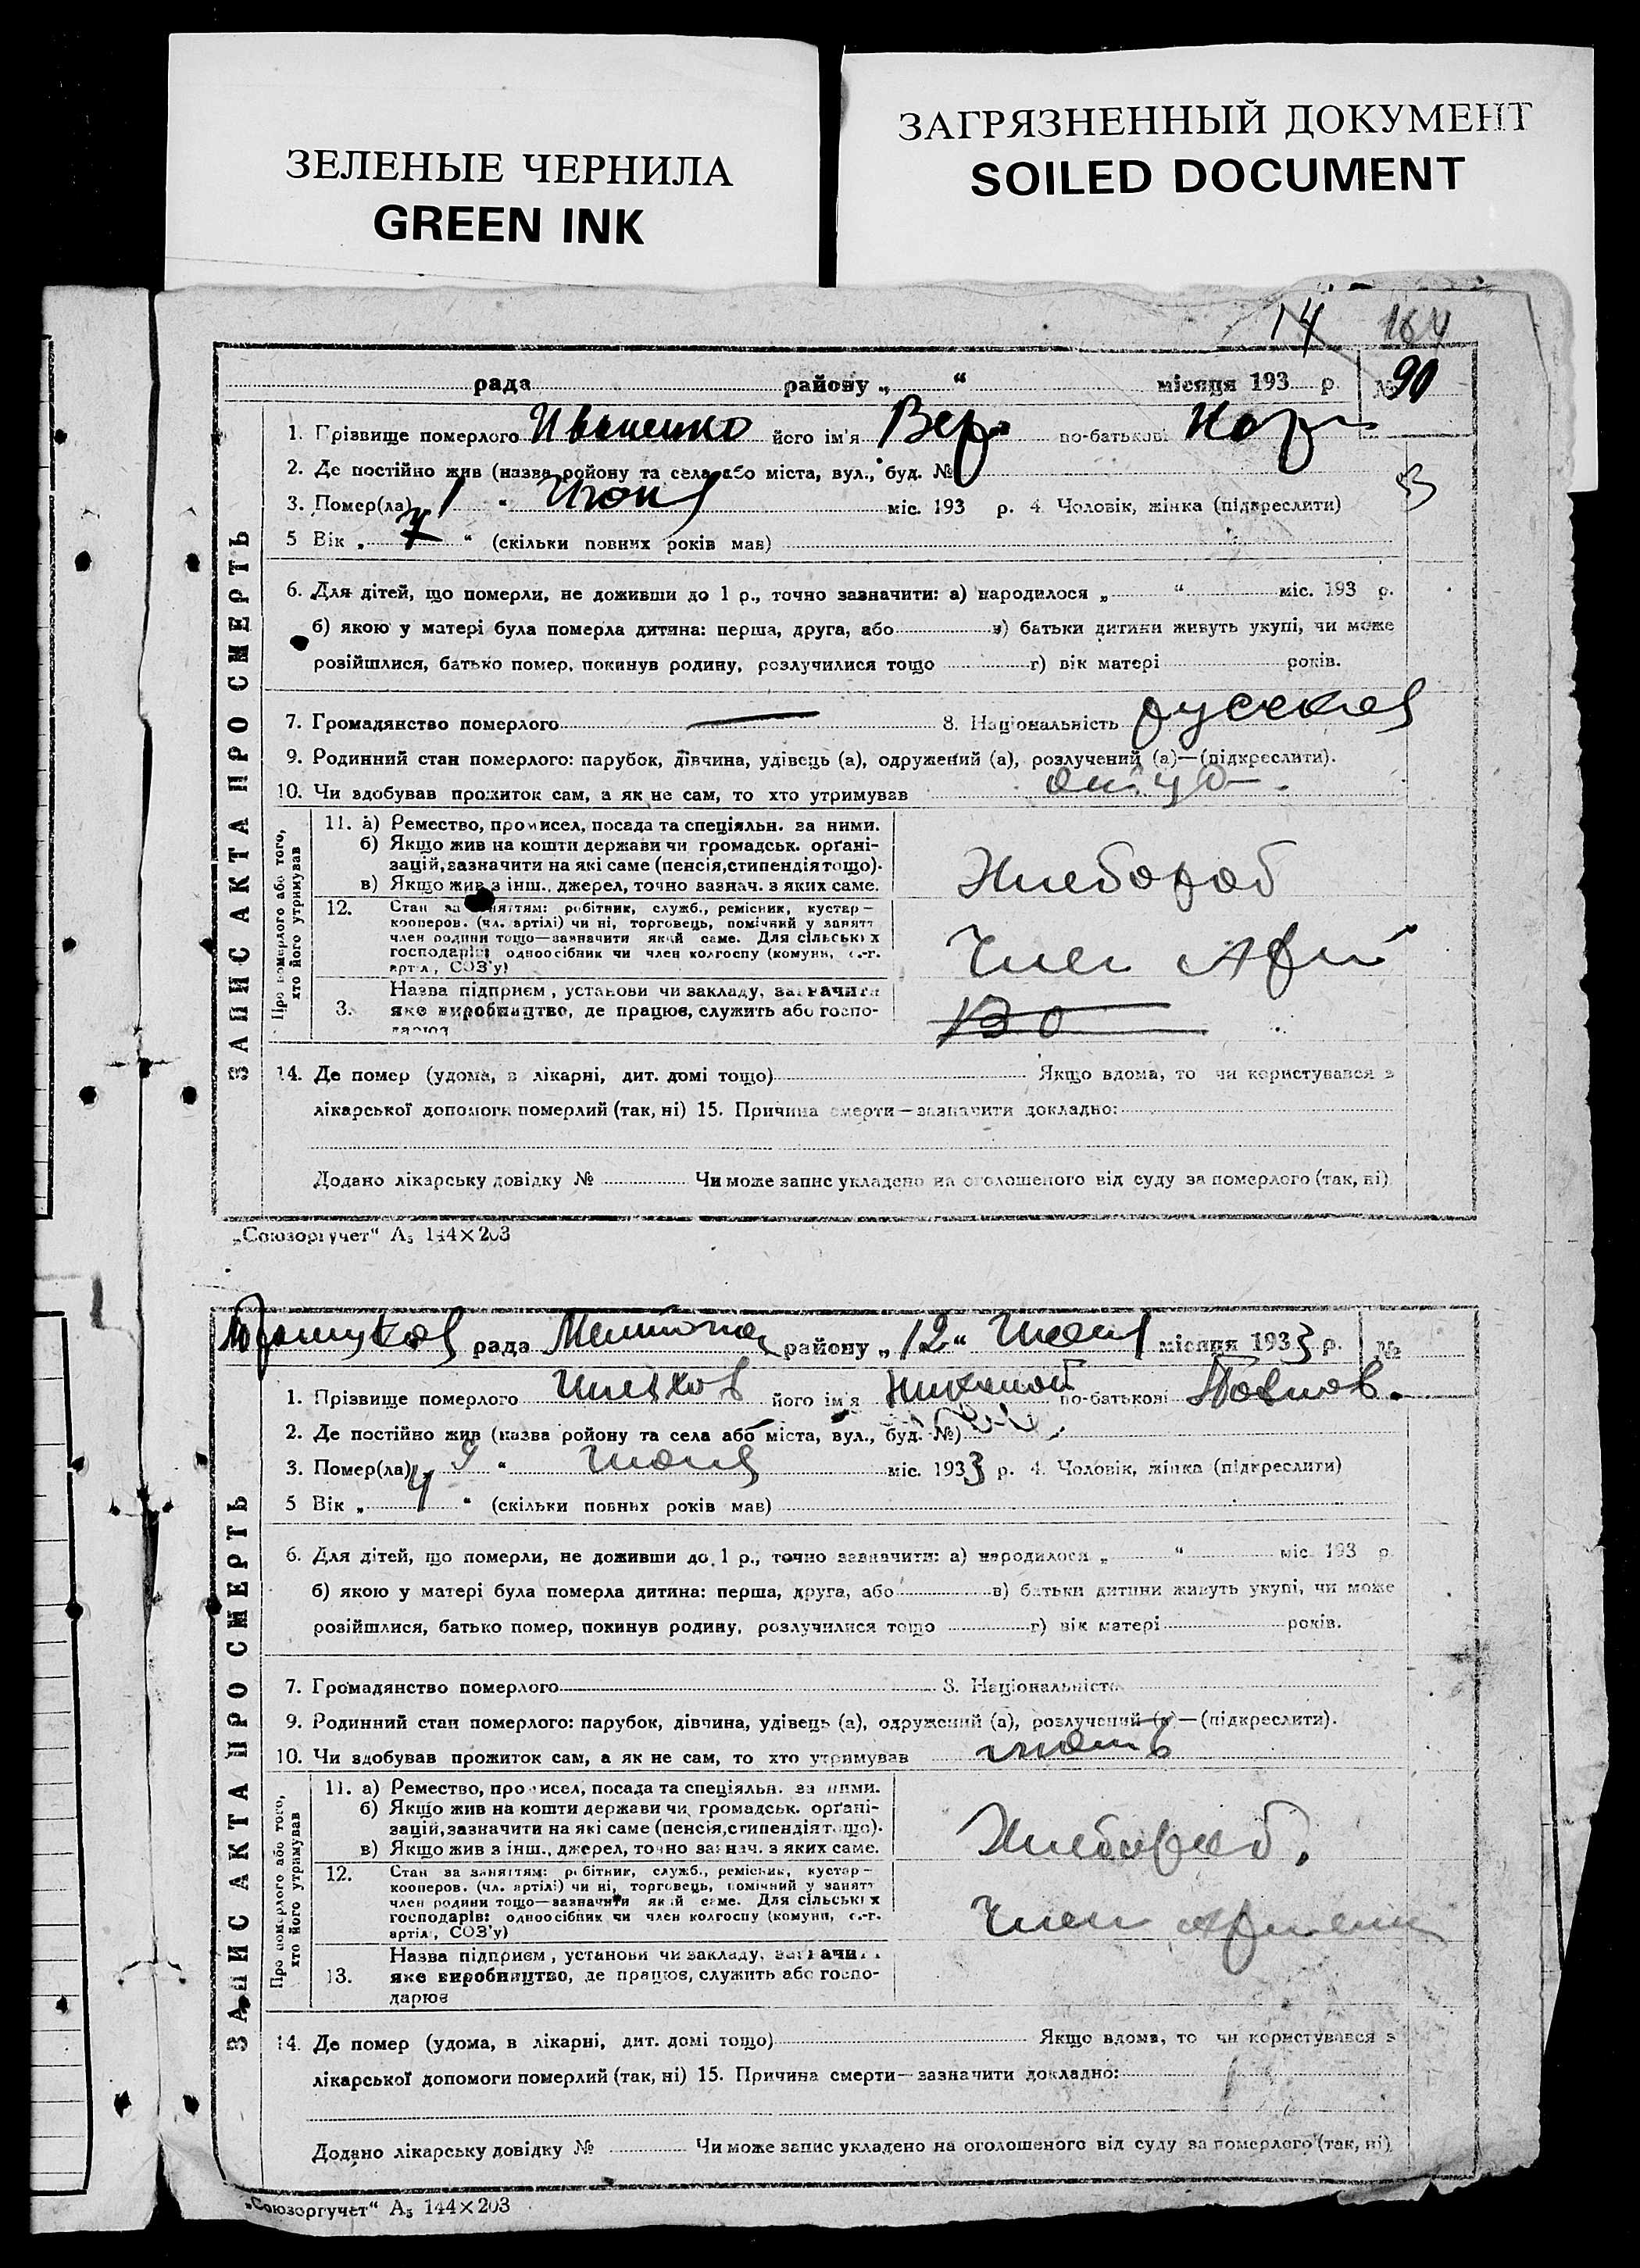 ЗЕЛЕНЫЕ ЧЕРНИЛА
GREEN INK
ЗАГРЯЗНЕННЫЙ ДОКУМЕНТ
SOILED DOCUMENT
14 164
рада району „ “ місяця 193 р. № 90
ЗАПИС АКТА ПРО СМЕРТЬ
1. Прізвище померлого Иваненко його ім'я Вера по-батькові
2. Де постійно жив (назва ройону та села або міста, вул., буд. №
3. Помер(ла) 1 “ Июня міс. 193 р. 4. Чоловік, жінка (підкреслити)
5 Вік „ “ (скільки повних років мав)
6. Для дітей, що померли, не доживши до 1 р., точно зазначити: а) народилося „ “ міс. 193 р.
б) якою у матері була померла дитина: перша, друга, або в) батьки дитини живуть укупі, чи може
розійшлися, батько помер, покинув родину, розлучилися тощо г) вік матері років.
7. Громадянство померлого — 8. Національність русская
9. Родинний стан померлого: парубок, дівчина, удівець (а), одружений (а), розлучений (а)—(підкреслити).
10. Чи здобував прожиток сам, а як не сам, то хто утримував
Про померлого або того, хто його утримував
11. а) Ремество, промисел, посада та спеціяльн. за ними.
б) Якщо жив на кошти держави чи громадськ. орґані-
зацій, зазначити на які саме (пенсія, стипендія тощо).
в) Якщо жив з інш., джерел, точно зазнач. з яких саме.
Хлебороб
12. Стан за заняттям: робітник, служб., ремісник, кустар—
кооперов. (чл. артілі) чи ні, торговець, помічний у занятт
член родини тощо—зазначити який саме. Для сільських
господарів: одноосібник чи член колгоспу (комуни, с.-г.
артіл., СОЗ'у)
Член
3. Назва підприєм, установи чи закладу, зазначити
яке виробництво, де працює, служить або госпо-
дарює
14. Де помер (удома, в лікарні, дит. домі тощо) Якщо вдома, то чи користувався з
лікарської допомоги померлий (так, ні) 15. Причина смерти—зазначити докладно:
Додано лікарську довідку № Чи може запис укладено на оголошеного від суду за померлого (так, ні)
„Союзоргучет“ А5 144×203
рада району „12“ Июня місяця 1933 р. №
ЗАПИС АКТА ПРО СМЕРТЬ
1. Прізвище померлого його ім'я по-батькові Павлов.
2. Де постійно жив (назва ройону та села або міста, вул., буд. №)
3. Помер(ла) „ 9 “ Июня міс. 1933 р. 4. Чоловік, жінка (підкреслити)
5 Вік „ 4 “ (скільки повних років мав)
6. Для дітей, що померли, не доживши до 1 р., точно зазначити: а) народилося „ “ міс. 193 р.
б) якою у матері була померла дитина: перша, друга, або в) батьки дитини живуть укупі, чи може
розійшлися, батько помер, покинув родину, розлучилися тощо г) вік матері років.
7. Громадянство померлого 8. Національність
9. Родинний стан померлого: парубок, дівчина, удівець (а), одружений (а), розлучений (а)—(підкреслити).
10. Чи здобував прожиток сам, а як не сам, то хто утримував мать
Про померлого або того, хто його утримував
11. а) Ремество, промисел, посада та спеціяльн. за ними.
б) Якщо жив на кошти держави чи громадськ. орґані-
зацій, зазначити на які саме (пенсія, стипендія тощо).
в) Якщо жив з інш., джерел, точно зазнач. з яких саме.
Хлебороб.
12. Стан за заняттям: робітник, служб., ремісник, кустар—
кооперов. (чл. артілі) чи ні, торговець, помічний у занятт
член родини тощо—зазначити який саме. Для сільських
господарів: одноосібник чи член колгоспу (комуни, с.-г.
артіл., СОЗ'у)
Член артели
13. Назва підприєм, установи чи закладу, зазначити
яке виробництво, де працює, служить або госпо-
дарює
14. Де помер (удома, в лікарні, дит. домі тощо) Якщо вдома, то чи користувався з
лікарської допомоги померлий (так, ні) 15. Причина смерти—зазначити докладно:
Додано лікарську довідку № Чи може запис укладено на оголошеного від суду за померлого (так, ні)
„Союзоргучет“ А5 144×203